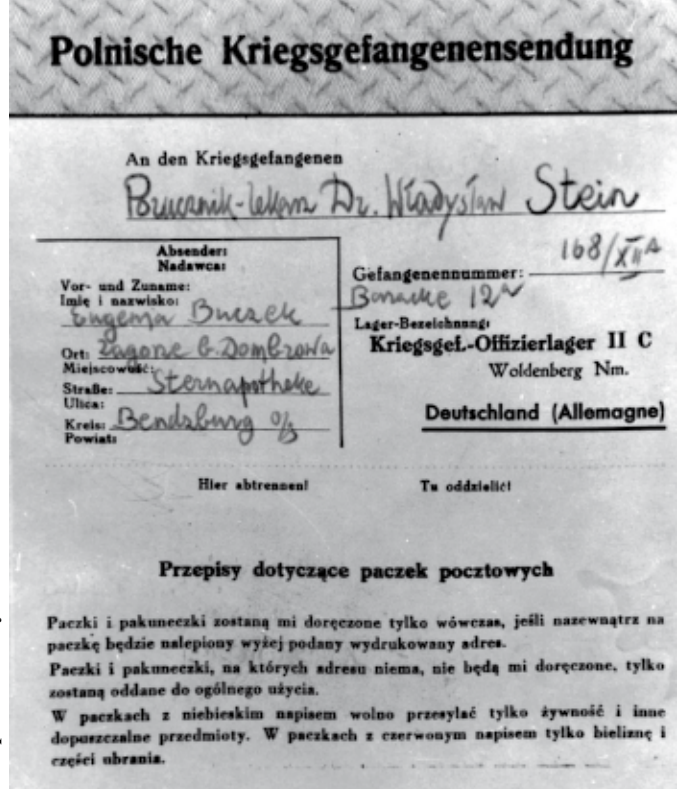 Polnische Kriegsgefangenensendung
An den Kriegsgefangenen
Dr. Władysław Stein
Absender:
Nadawca:
Vor- und Zuname:
Imię i nazwisko:
Eugenja Buczek
Ort: Zagorze b. Dombrowa
Miejscowość:
Straße: Sternapotheke
Ulica:
Kreis: Bendsburg O/S
Powiat:
Gefangenennummer: 168/XII A
Baracke 12a
Lager-Bezeichnung:
Kriegsgef.-Offizierlager II C
Woldenberg Nm.
Deutschland (Allemagne)
Hier abtrennen! Tu oddzielić!
Przepisy dotyczące paczek pocztowych
Paczki i pakuneczki zostaną mi doręczone tylko wówczas, jeśli nazewnątrz na
paczkę będzie nalepiony wyżej podany wydrukowany adres.
Paczki i pakuneczki, na których adresu niema, nie będą mi doręczone, tylko
zostaną oddane do ogólnego użycia.
W paczkach z niebieskim napisem wolno przesyłać tylko żywność i inne
dopuszczalne przedmioty. W paczkach z czerwonym napisem tylko bieliznę i
części ubrania.